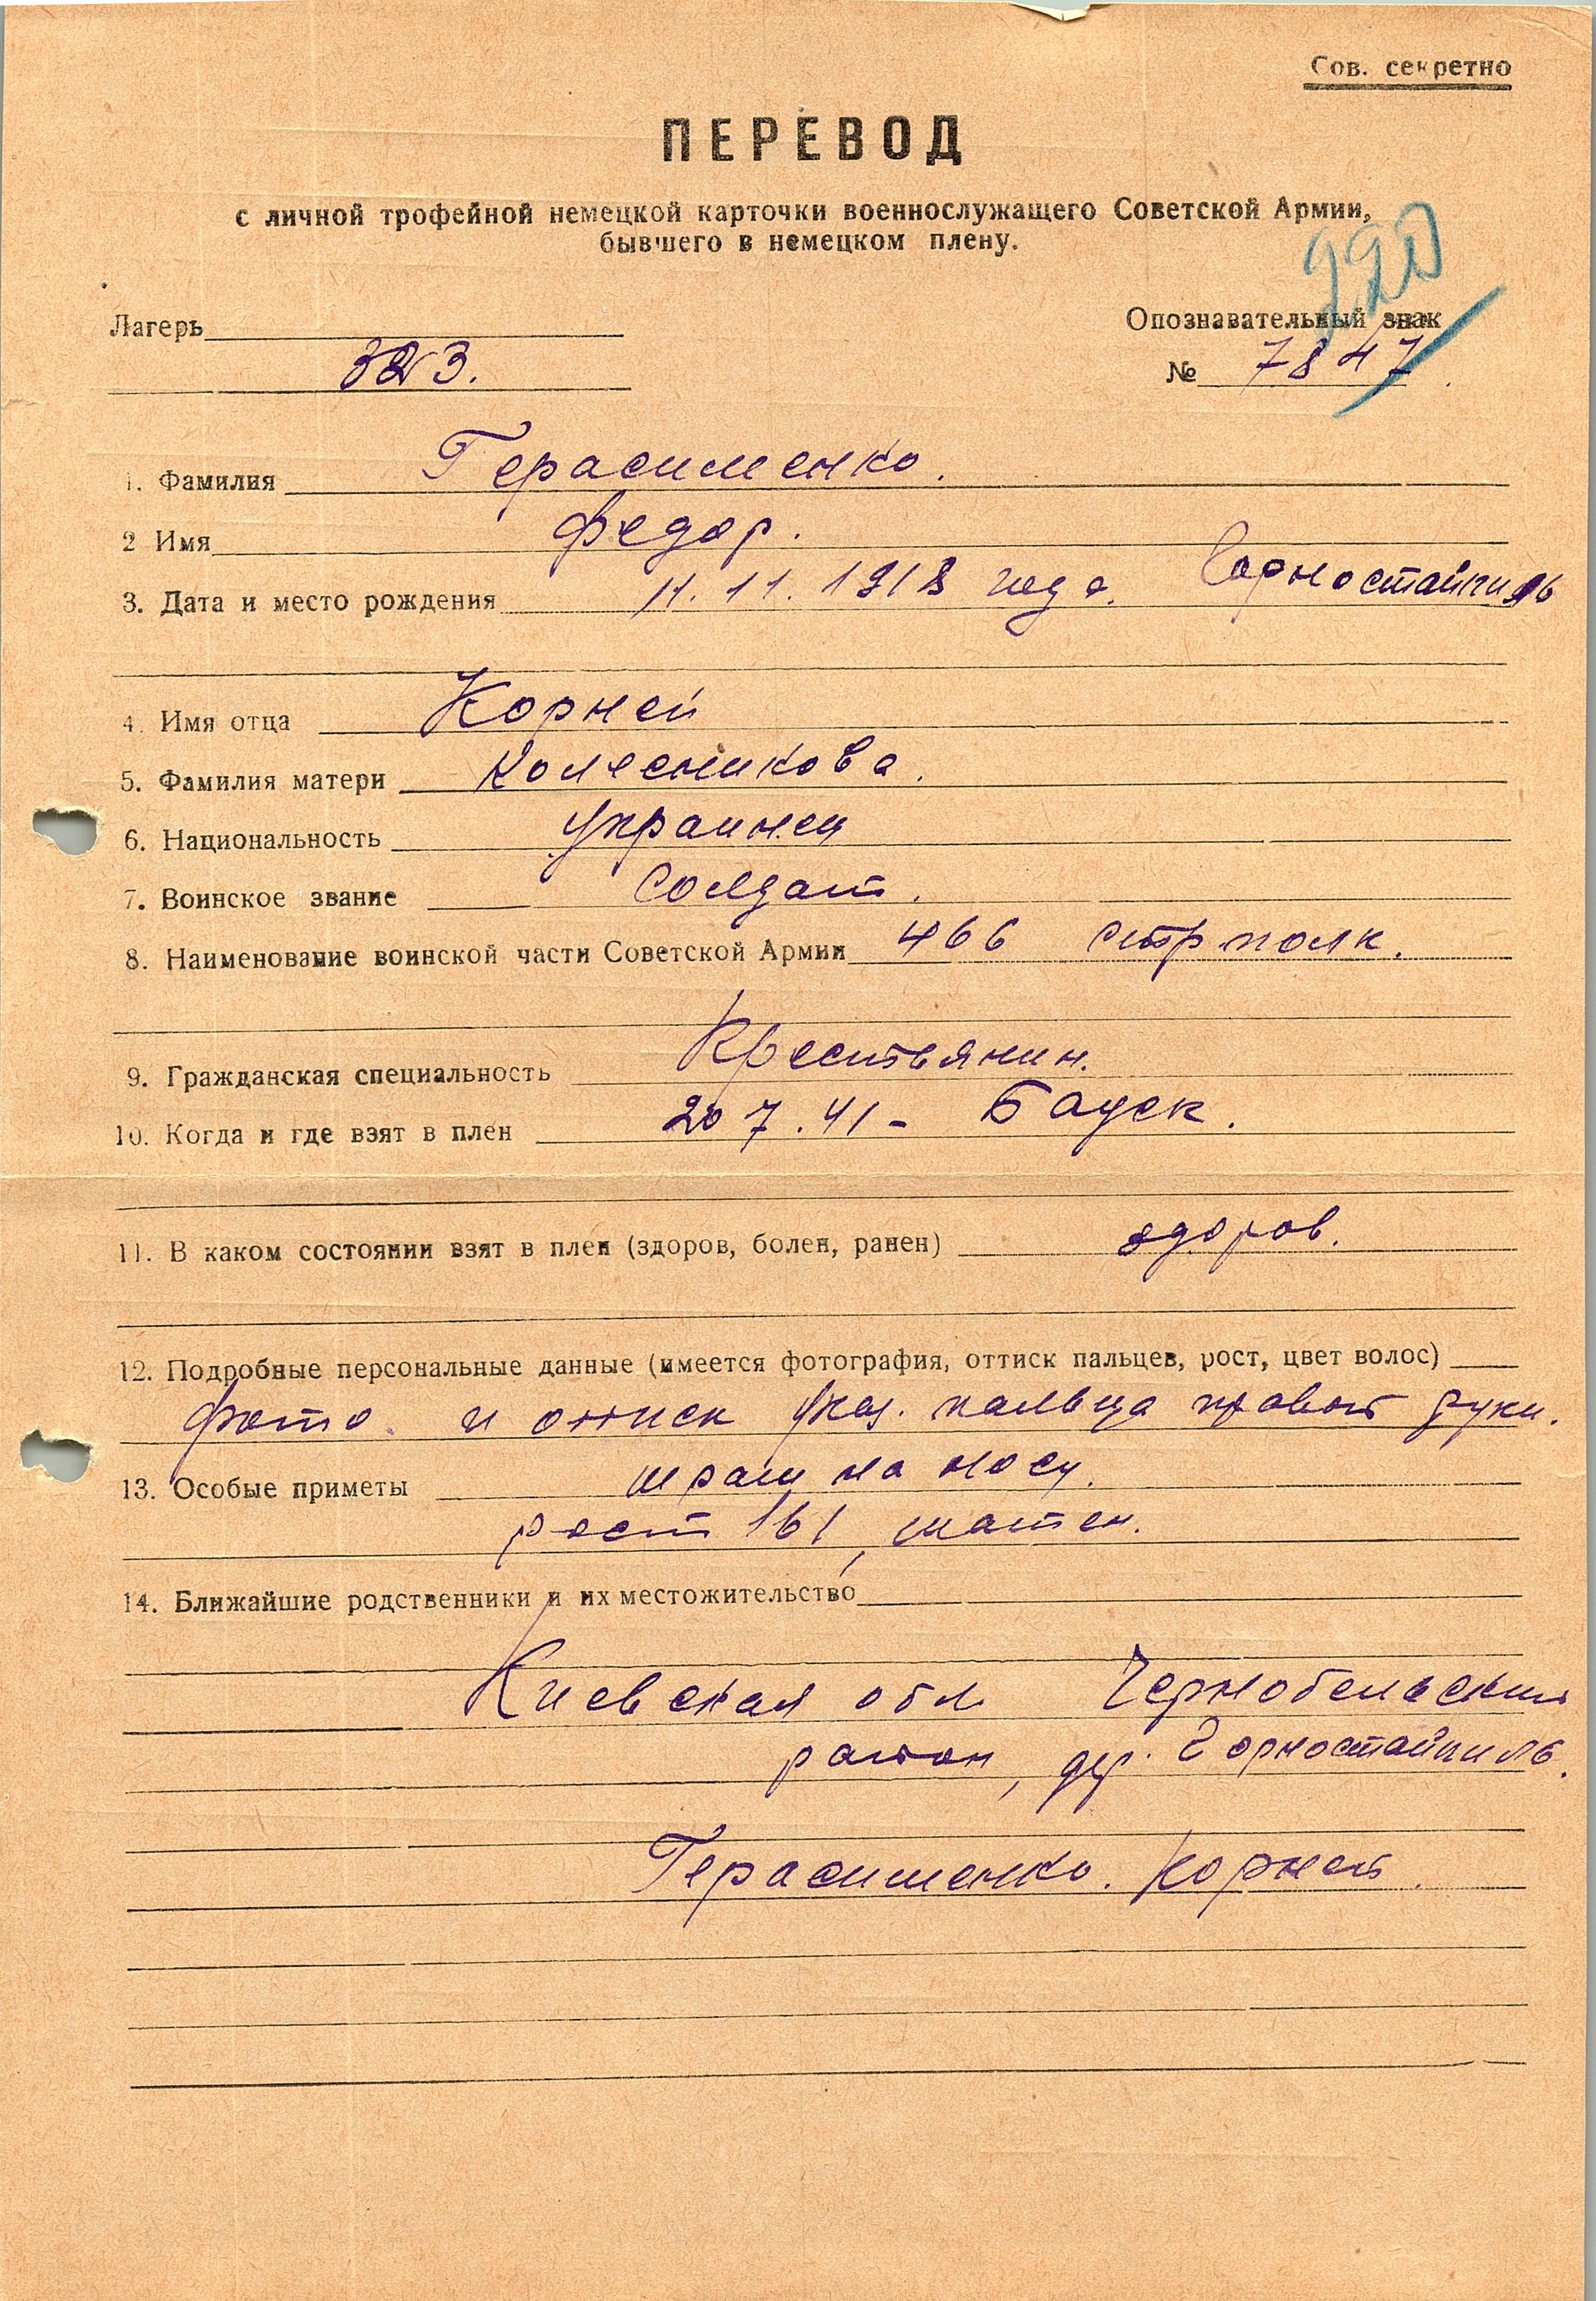 Сов. секретно
ПЕРЕВОД
с личной трофейной немецкой карточки военнослужащего Советской Армии,
бывшего в немецком плену.
220
Лагерь
323.
Опознавательный знак
№ 7847
1. Фамилия Герасименко.
2 Имя Федор.
3. Дата и место рождения 11.11.1918 года. Горностайпиль
4. Имя отца Корней
5. Фамилия матери Колесникова.
6. Национальность Украинец
7. Воинское звание Солдат.
8. Наименование воинской части Советской Армии 466 стр полк.
9. Гражданская специальность Крестьянин.
10. Когда и где взят в плен 20 7.41 - Бауск.
11. В каком состоянии взят в плен (здоров, болен, ранен) здоров.
12. Подробные персональные данные (имеется фотография, оттиск пальцев, рост, цвет волос)
фото и оттиск указ. пальца правой руки.
13. Особые приметы шрам на носу.
рост 161, шатен.
14. Ближайшие родственники и их местожительство
Киевская обл Чернобельский
район, дер. Горностайпиль.
Герасименко. Корней.